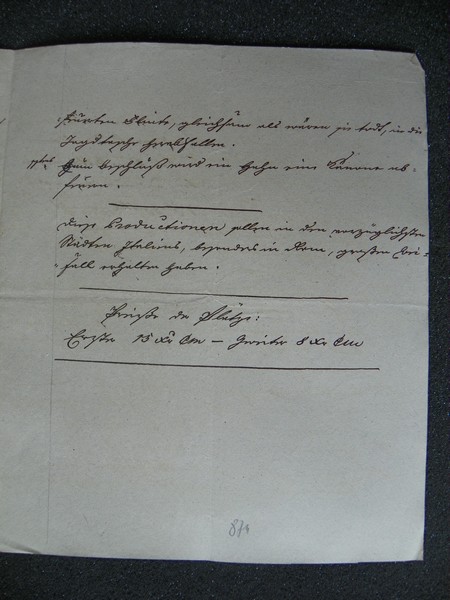 harten Seite, gleichsam als wären sie todt, in die
Jagdtasche herabfallen.
Zum Beschluß wird ein Hahn eine Canone ab-
feuern.
Diese Productionen sollen in den vorzüglichsten
Städten Italiens, besonders in Rom, großen Bei-
fall erhalten haben.
Preiße der Plätze:
Erster 15 xr Cm — Zweiter 8 xr Cm
87v